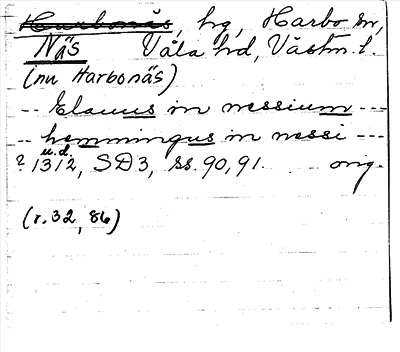 Harbonäs, hg, Harbo sn,
Näs Våla hd, Västm. l.
(nu Harbonäs)
-- Elauus in nessium ---
-- hemmingus in nessi ---
u.d.
? 1312, SD3, ss. 90, 91. orig.
(r. 32, 86)